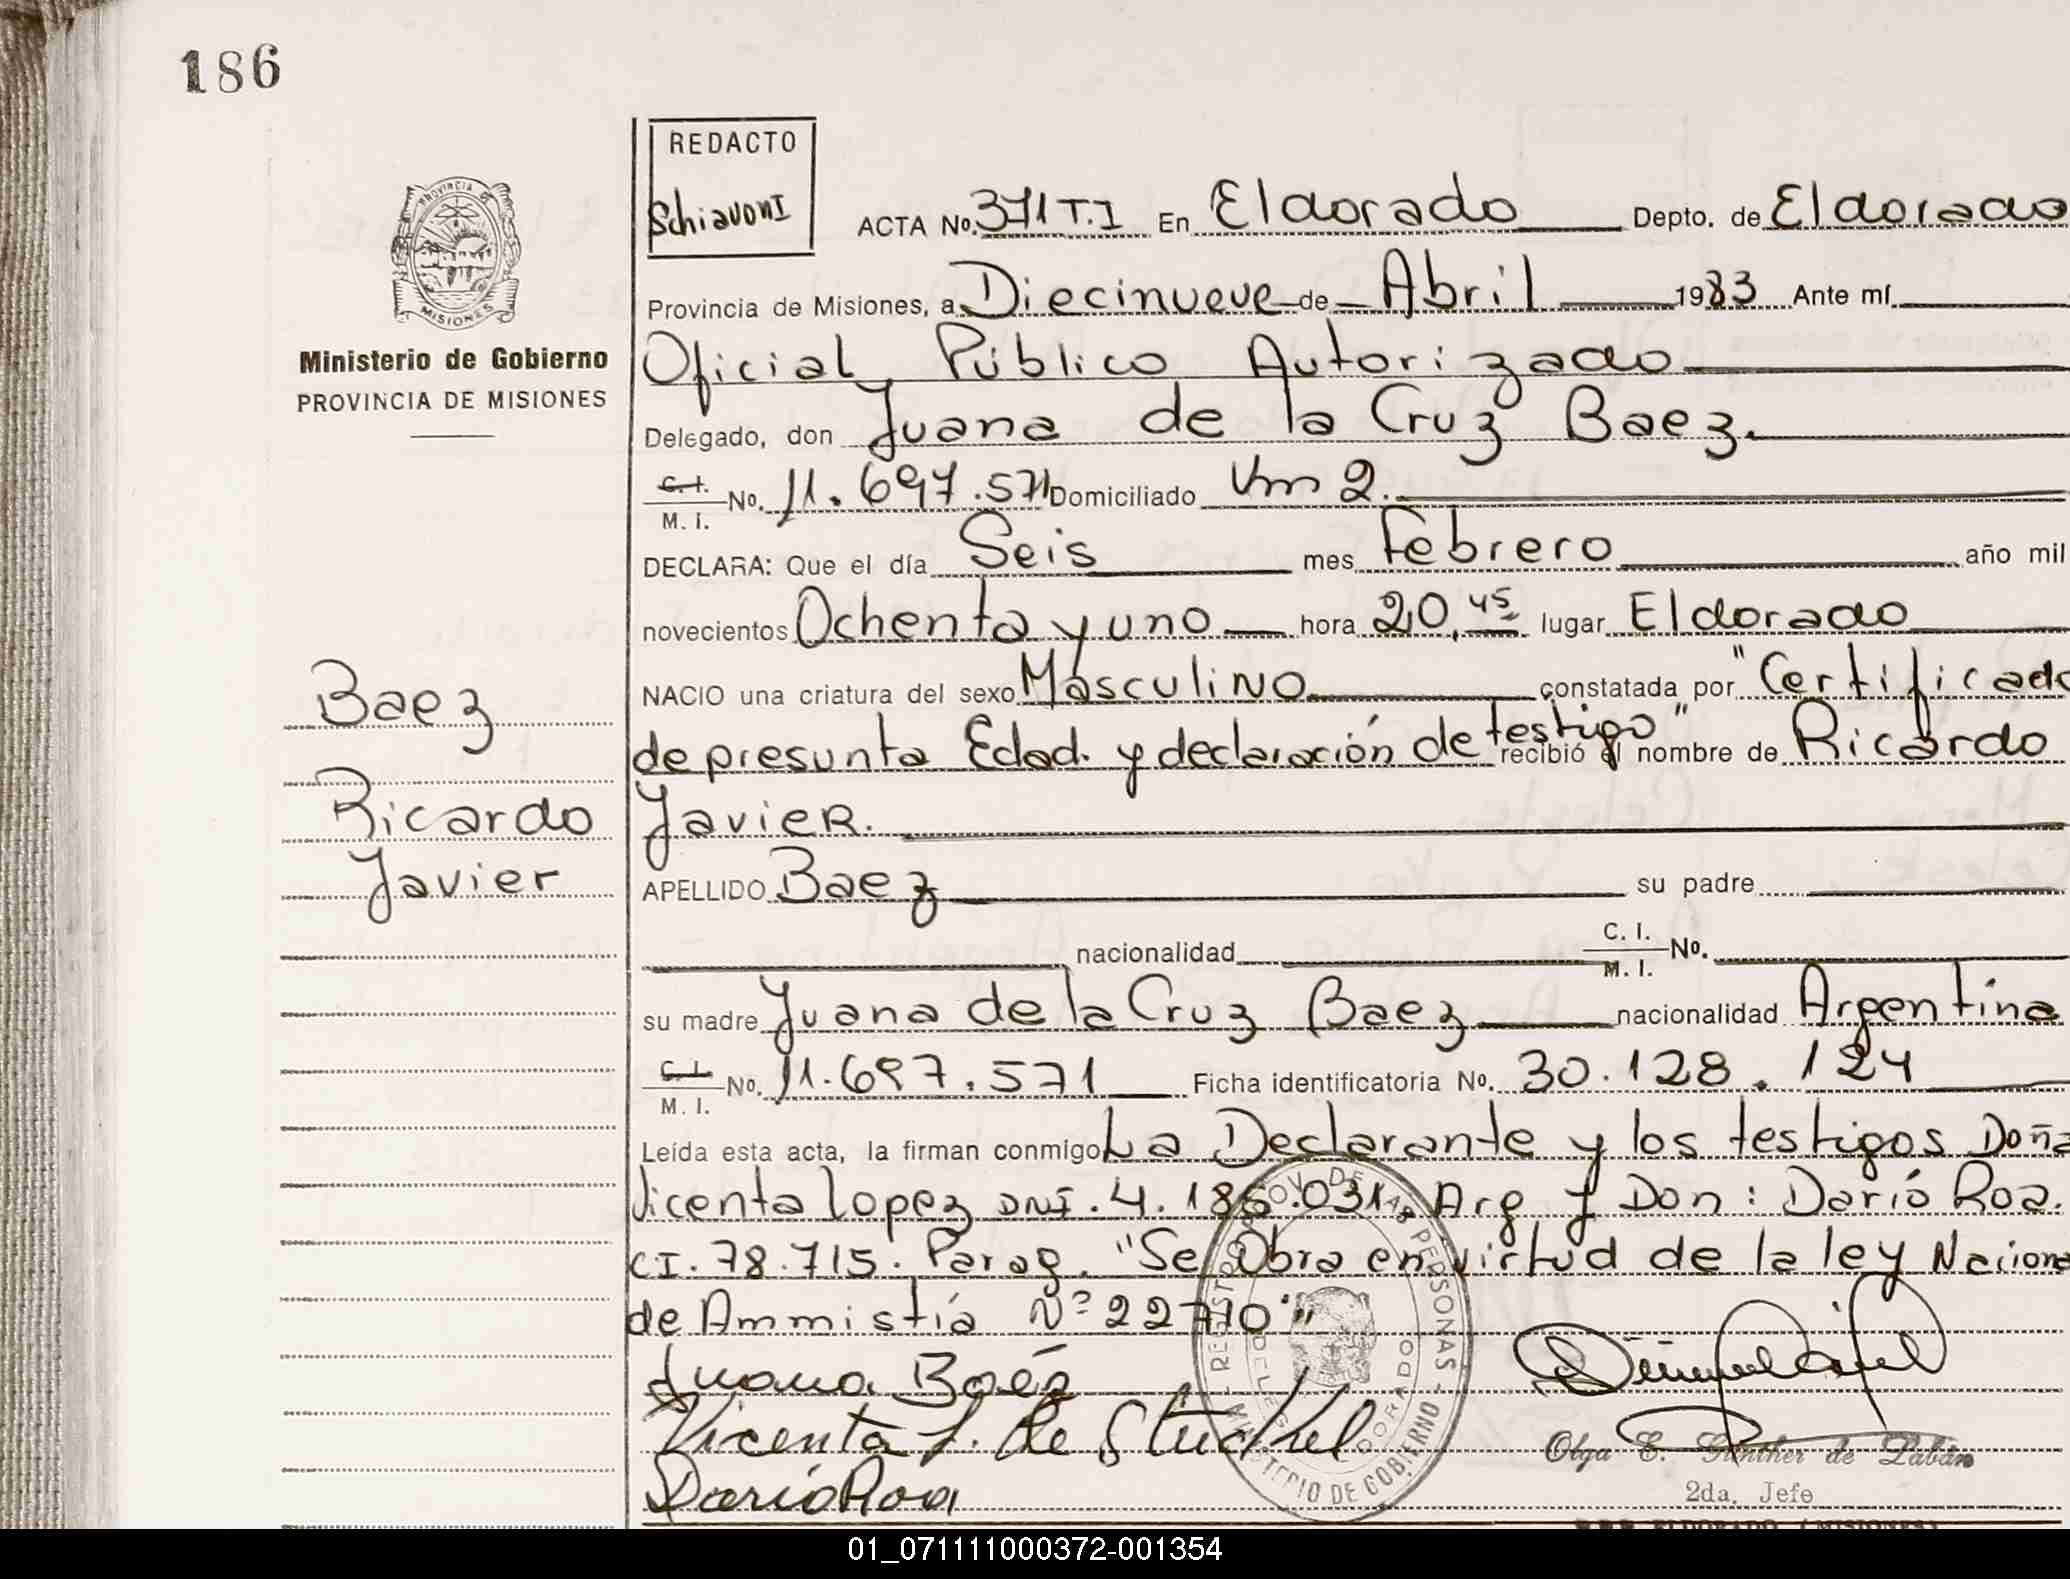 186
REDACTO
Schiavoni
ACTA No. 371 T.I En Eldorado Depto. de Eldorado
Provincia de Misiones, a Diecinueve de Abril 1983 Ante mí
Oficial Público Autorizado
Delegado, don Juana de la Cruz Baez.
C.I. M. I. No. 11.697.571 Domiciliado Km 2.
DECLARA: Que el día Seis mes Febrero año mil
novecientos Ochenta y uno hora 20,45 lugar Eldorado
NACIO una criatura del sexo Masculino constatada por "Certificado
de presunta Edad. y declaración de testigo" recibió el nombre de Ricardo
Javier.
APELLIDO Baez su padre
nacionalidad C. I. M. I. No.
su madre Juana de la Cruz Baez nacionalidad Argentina
C.I. M. I. No. 11.697.571 Ficha identificatoria No. 30.128.124
Leída esta acta, la firman conmigo La Declarante y los testigos Doña
Vicenta Lopez DNI. 4.185.031. Arg y Don: Darío Roa.
CI. 78.715. Parag. "Se Obra en virtud de la ley Naciona
de Ammistía Nº 22710"
Juana Baéz
Vicenta L. de Stuckel
Darío Roa
PROVINCIA DE
MISIONES
Ministerio de Gobierno
PROVINCIA DE MISIONES
Baez
Ricardo
Javier
REGISTRO PROV. DE LAS PERSONAS
MINISTERIO DE GOBIERNO
ELDORADO
Olga E. Günther de Labán
2da. Jefe
01_071111000372-001354